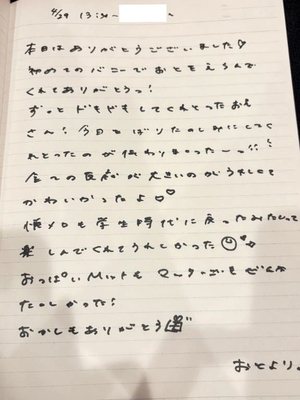 4/29 13:30〜 〜
本日はありがとうございました♡
初めてのバニーでおとをえらんで
くれてありがとうっ!
ずっとドキドキしてくれとったお兄
さん! 今日を
れとったのが伝わりまったーっ!!
全ての反応が大きいのがうれしくて
かわいかったよ♡♡
懐メロも学生時代に戻ったみたいで
楽しんでくれてうれしかった
おっぱいMットも マーターごもぜんぶ
たのしかった!
おかしもありがとう
おとより。